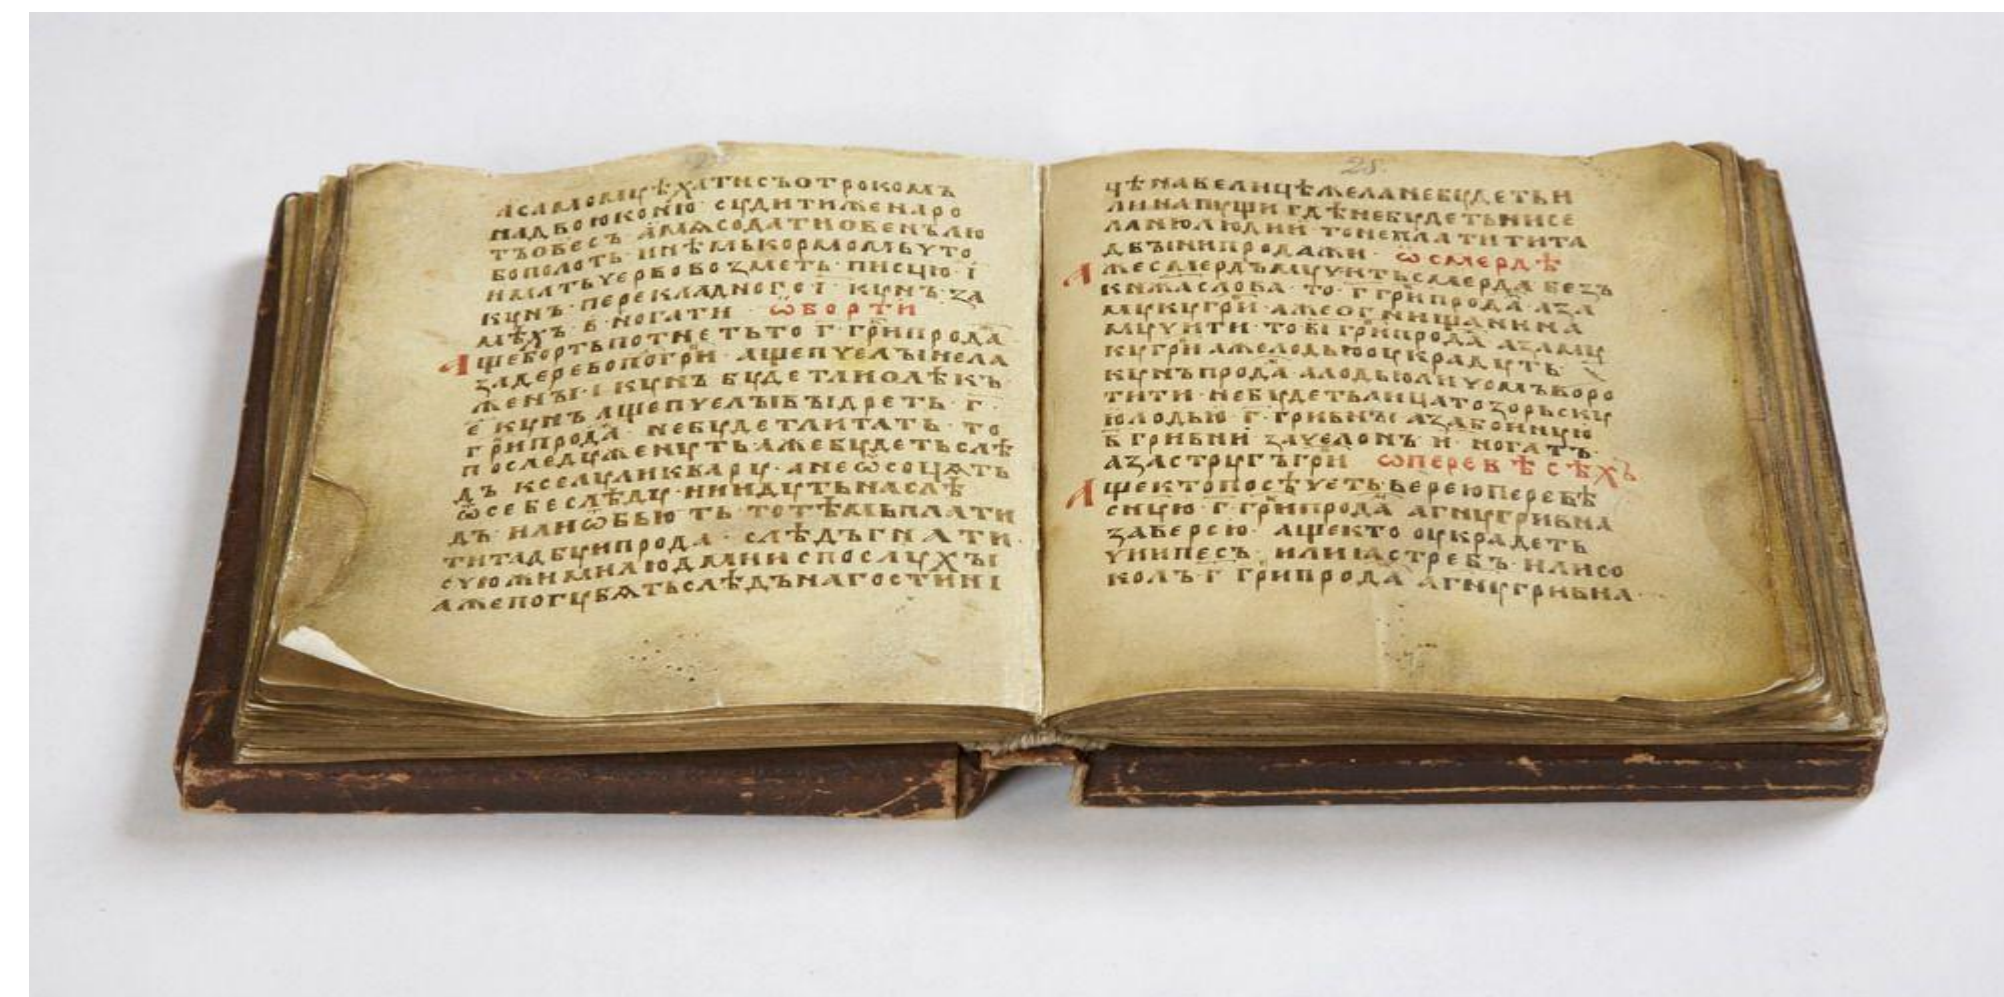 А САМОМУ ѢХАТИ СЪ ОТРОКОМЪ
НА ДВОЮ КОНЮ СУДИТИ ЖЕ НА РО
ТЪ ОВЕСЪ А МѦСО ДАТИ ОВЕНЪ ЛЮ
БО ПОЛОТЬ ИНѢМЬ КОРМОМЬ ЧТО
ИМАТЬ ЧЕРЕВО ВОЗМЕТЬ ПИСЦЮ І
КУНЪ ПЕРЕКЛАДНОГО І КУНЪ ЗА
МѢХЪ В НОГАТИ Ѿ БОРТИ
АЩЕ БОРТЬ ПОТНЕТЬ ТО Г ГРИ ПРОДА
ЗА ДЕРЕВО ПОГРИ АЩЕ ПЧЕЛЫ НЕЛА
ЖЕНЫ І КУНЪ БУДЕТ ЛИ ОЛѢКЪ
Е КУНЪ АЩЕ ПЧЕЛЫ ВЫДРЕТЬ Г
ГРИ ПРОДА НЕ БУДЕТ ЛИ ТАТЬ ТО
ПО СЛЕДУ ЖЕНУТЬ АЖЕ БУДЕТЬ СЛѢ
ДЪ К СЕЛУ ЛИ К ВАРУ А НЕ ѾСОЦѦТЬ
Ѿ СЕБЕ СЛѢДУ НИ ИДУТЬ НА СЛѢ
ДЪ ИЛИ ѾБЬЮТЬ ТО ТѢМЬ ПЛАТИ
ТИ ТАДБУ И ПРОДА СЛѢДЪ ГНАТИ
С ЧЮЖИМИ ЛЮДМИ И С ПОСЛУХЫ
АЖЕ ПОГУБѦТЬ СЛѢДЪ НА ГОСТИНІ
28
ЧѢ НА ВЕЛИЦѢ Ж ЕЛА НЕ БУДЕТЬ И
ЛИ НА ПУЩИ ГДѢ НЕ БУДЕТЬ НИ СЕ
ЛА НЮ ЛЮДИИ ТО НЕ ПЛАТИТИ ТА
ДБЫ НИ ПРОДАЖИ Ѡ СМЕРДѢ
АЖЕ СМЕРДЪ МУЧИТЬ СМЕРДА БЕЗЪ
КНѦЖА СЛОВА ТО Г ГРИ ПРОДА А ЗА
МУКУ ГРИ АЖЕ ОГНИЩАНИНА
МУЧИТИ ТО ВІ ГРИ ПРОДА А ЗА МУ
КУ ГРИ АЖЕ ЛОДЬЮ ОУКРАДУТЬ
КУНЪ ПРОДА А ЛОДЬЮ ЛИЧОМЪ ВОРО
ТИТИ НЕ БУДЕТЬ ЛИЦА ТО ЗОРЬСКУ
Ю ЛОДЬЮ Г ГРИВНЫ А ЗА БОИНУЮ
В ГРИВНИ ЗА ЧЕЛОНЪ И НОГАТЪ
А ЗА СТРУГЪ ГРИ Ѡ ПЕРЕВѢСѢХЪ
АЩЕ КТО ПОСѢЧЕТЬ ВЕРЕЮ ПЕРЕВѢ
СНУЮ Г ГРИ ПРОДА А Г͠НУ ГРИВНА
ЗА ВЕРЕЮ АЩЕ КТО ОУКРАДЕТЬ
ЧИИ ПЕСЪ ИЛИ ꙖСТРЕБЪ ИЛИ СО
КОЛЪ Г ГРИ ПРОДА А Г͠НУ ГРИВНА